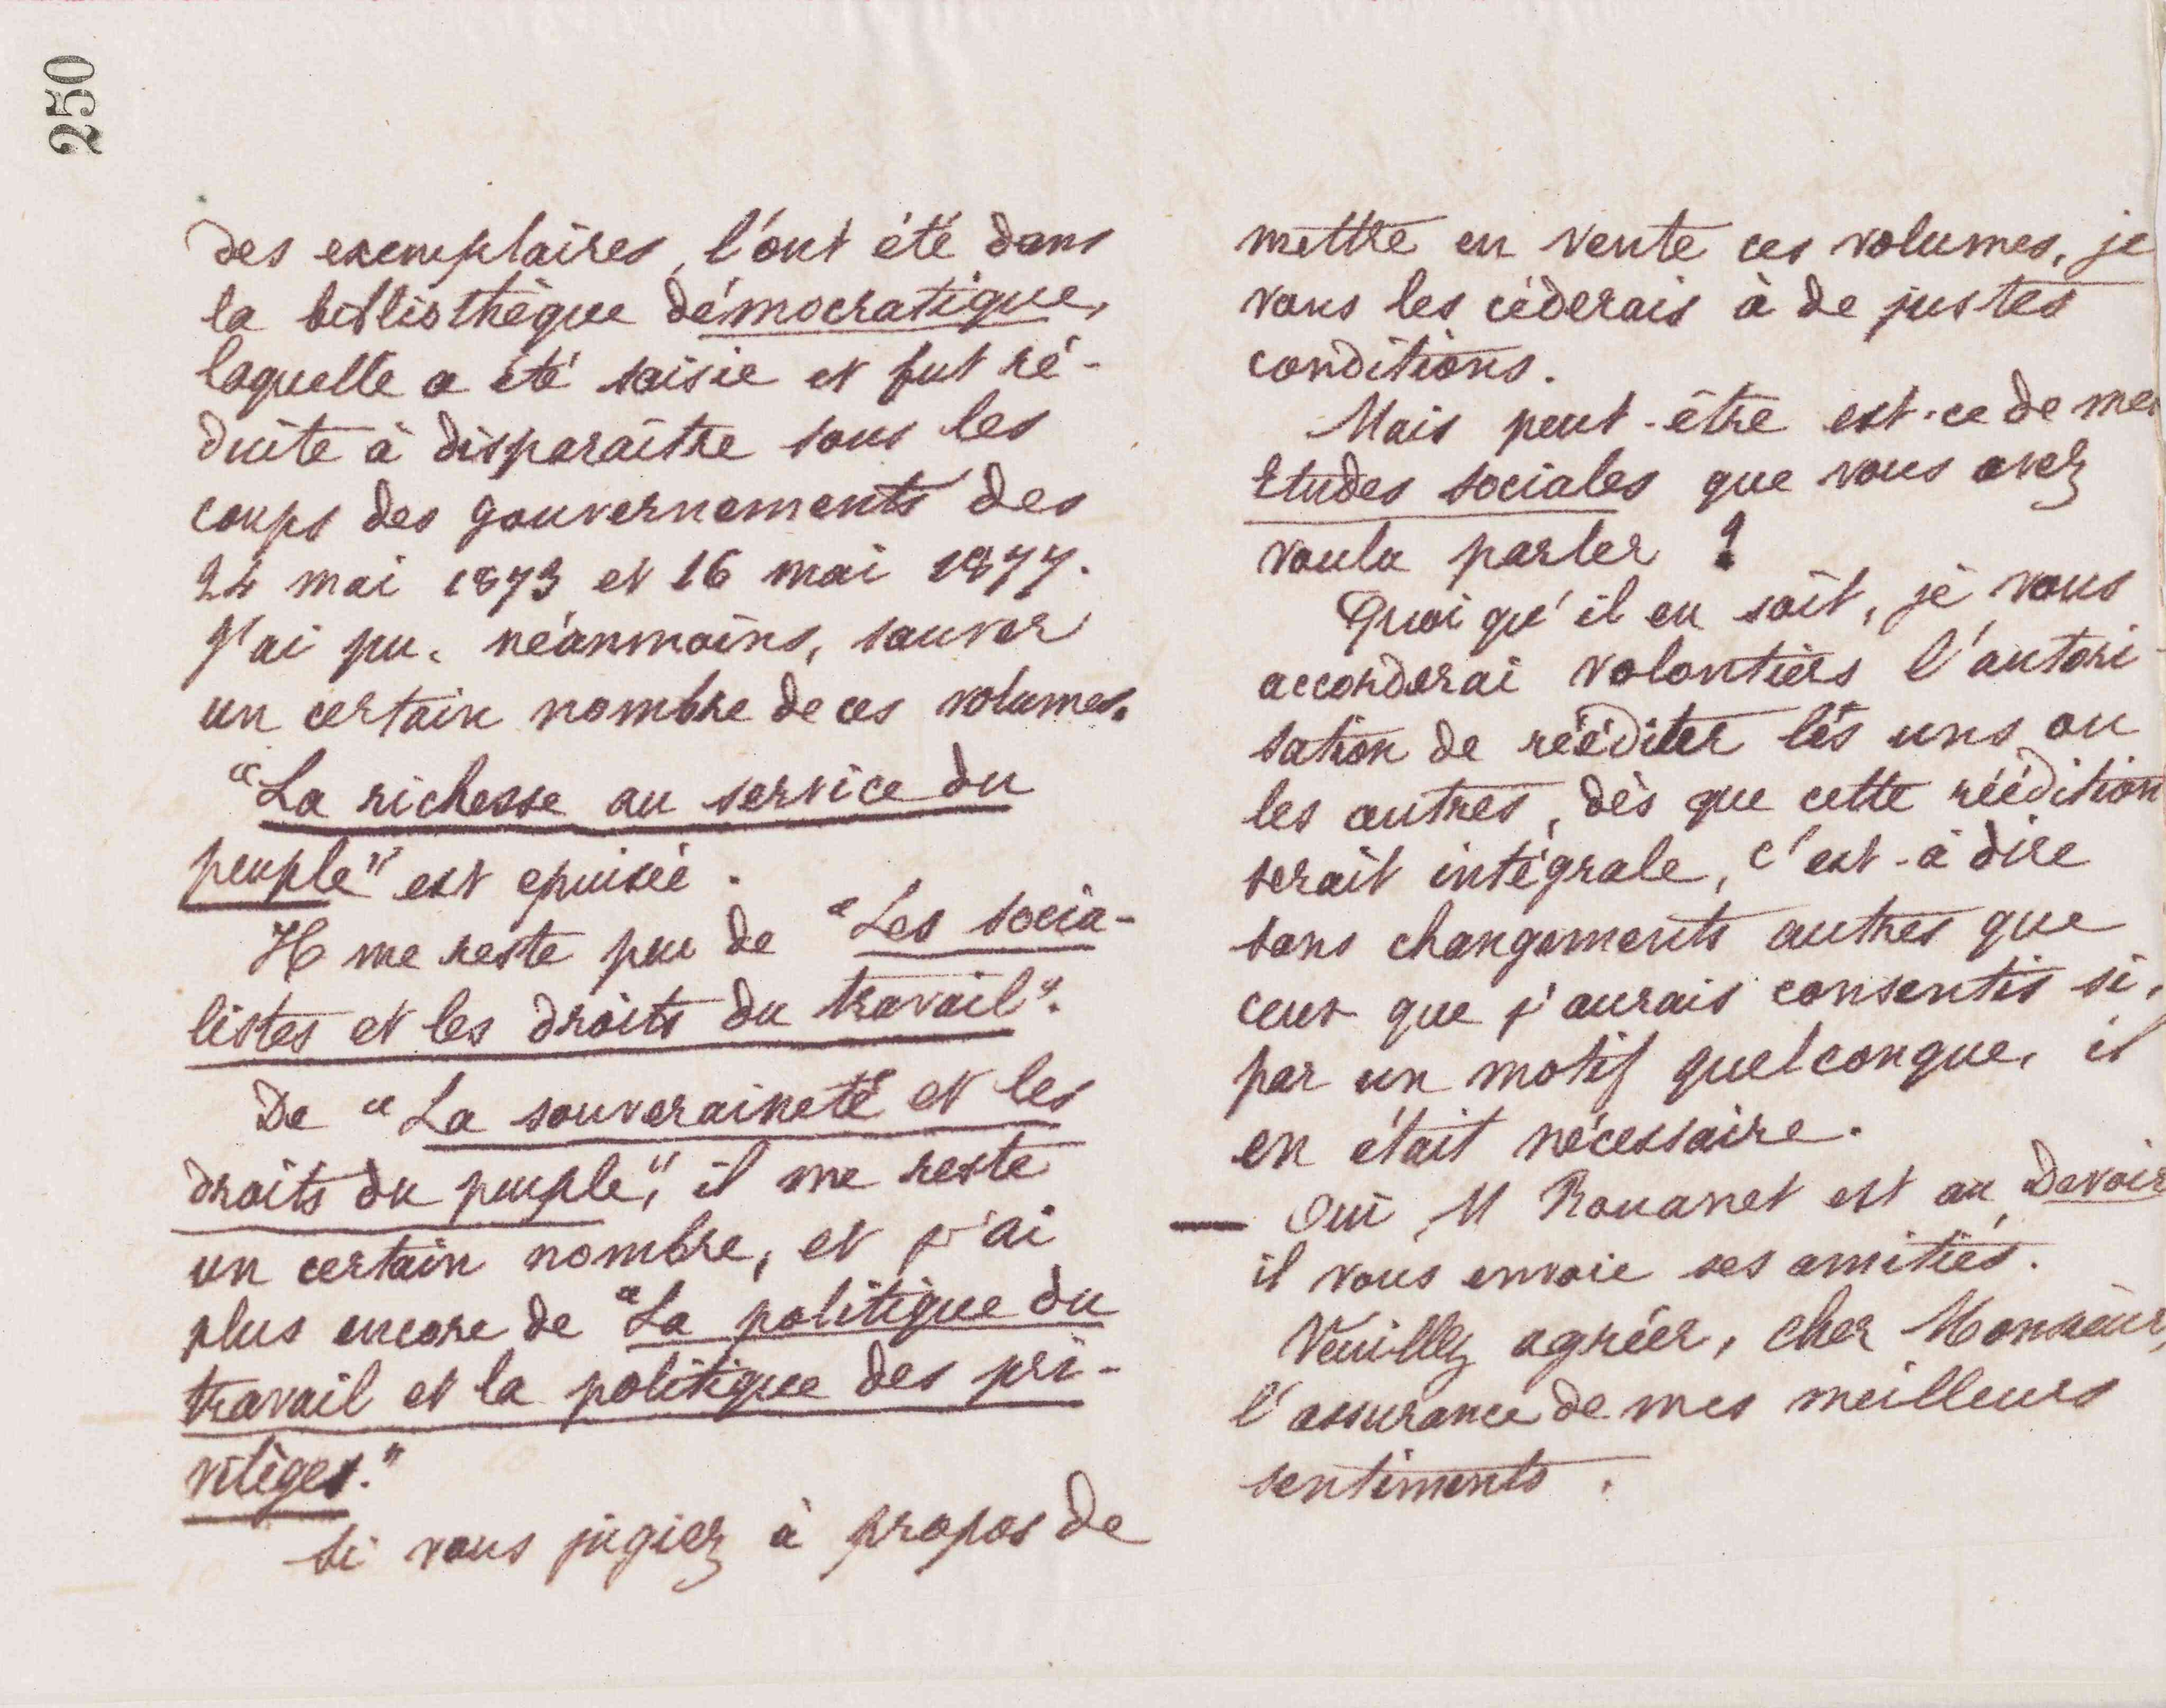 250
des exemplaires, l'ont été dans
la bibliothèque démocratique,
laquelle a été saisie et fut ré-
duite à disparaître sous les
coups des gouvernements des
24 mai 1873 et 16 mai 1877.
J'ai pu, néanmoins, sauver
un certain nombre de ces volumes.
"La richesse au service du
peuple" est epuisée.
Il me reste peu de "Les socia-
listes et les droits du travail".
De "La souveraineté et les
droits du peuple", il me reste
un certain nombre, et j'ai
plus encore de "La politique du
travail et la politique des pri-
vilèges."
Si vous jugiez à propos de
mettre en vente ces volumes, je
vous les cèderais à de justes
conditions.
Mais peut-être est-ce de mes
Etudes sociales que vous avez
voulu parler ?
Quoi qu'il en soit, je vous
accorderai volontiers l'autori-
sation de rééditer les uns ou
les autres, dès que cette réédition
serait intégrale, c'est-à dire
sans changements autres que
ceux que j'aurais consentis si,
par un motif quelconque, il
en était nécessaire.
— Oui M Rouanet est au Devoir
il vous envoie ses amitiés.
Veuillez agréer, cher Monsieur,
l'assurance de mes meilleurs
sentiments.